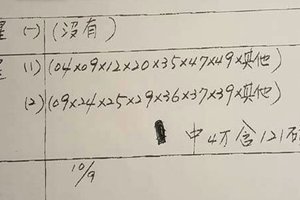 (一) (没有)
(1) (04×09×12×20×35×47×49×其他)
(2) (09×24×25×29×36×37×39×其他)
中4万含121万
10/9